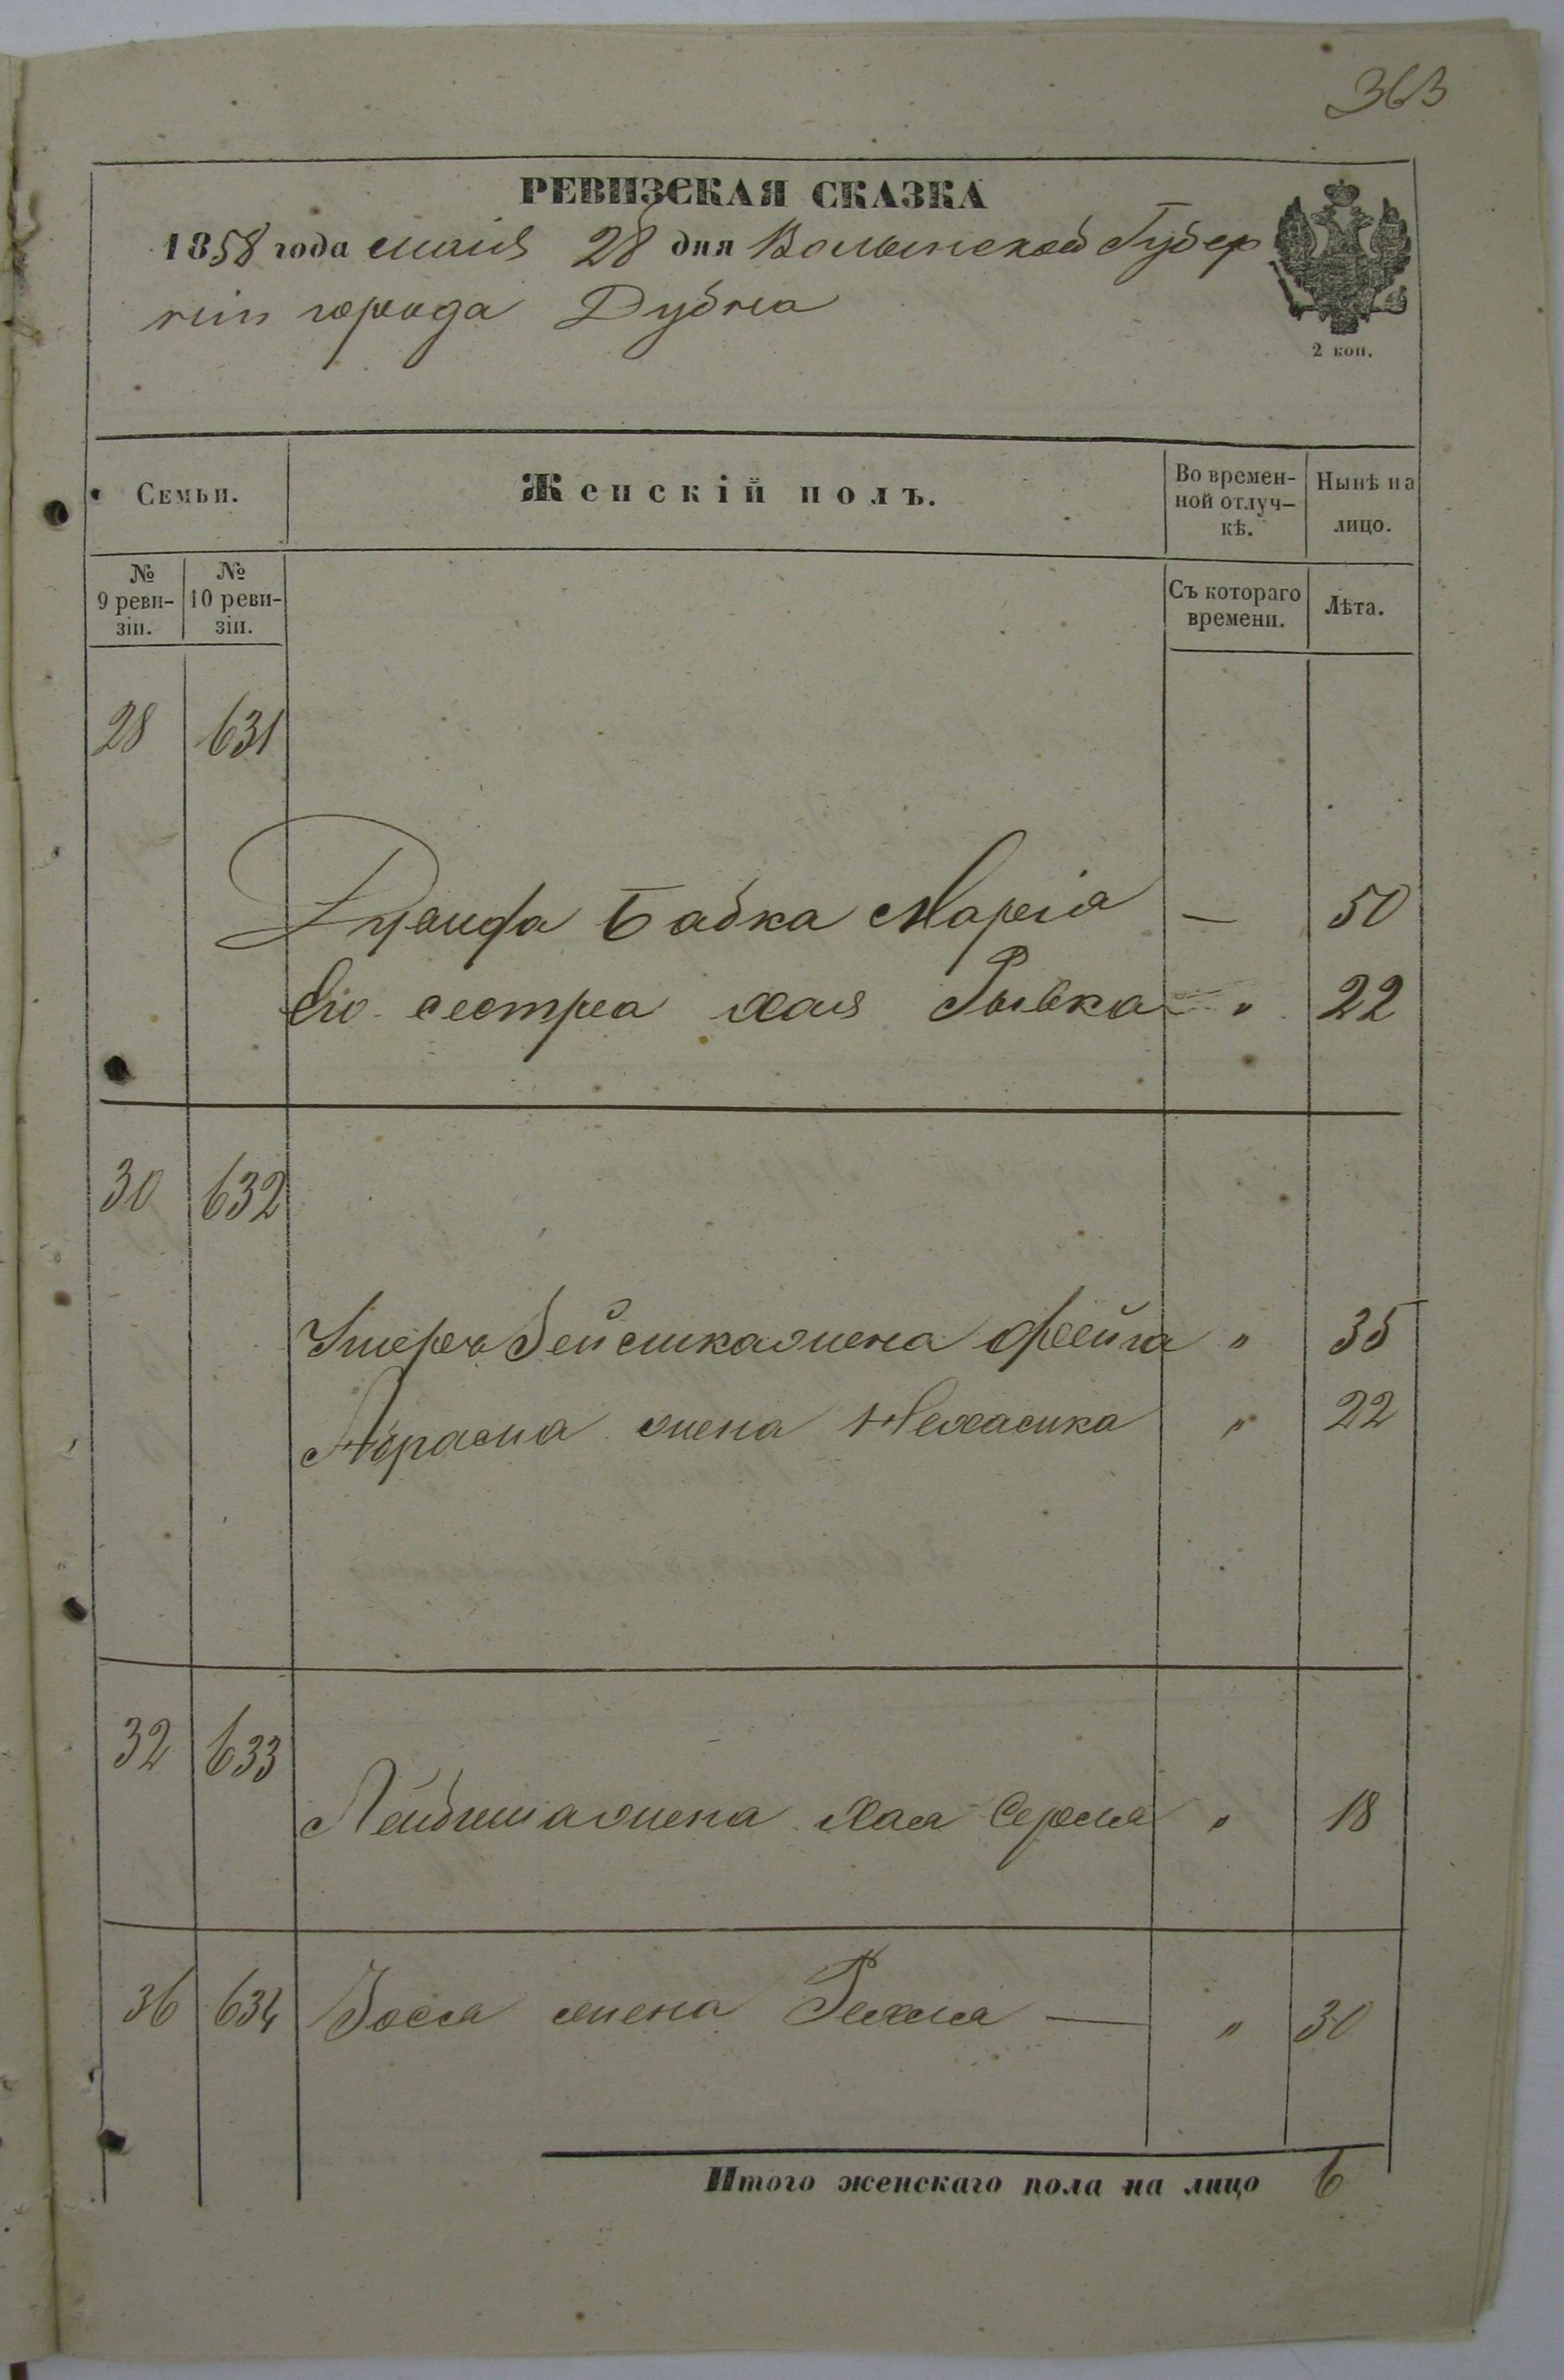 363
РЕВИЗСКАЯ СКАЗКА
1858 года маия 28 дня Волынской Губер
ніи города Дубна
2 коп.
Семьи.
Женскій полъ.
Во времен-
ной отлуч-
кѣ.
Нынѣ на
лицо.
№
9 реви-
зіи.
№
10 реви-
зіи.
Съ котораго
времени.
Лѣта.
28 631
Бабка Маріа — 50
Его сестра Хая Рывка " 22
30 632
жена Фейга " 35
Абрама жена Нехамка " 22
32 633
Лейбиша жена Хая Серля " 18
36 634 Іосся жена Рехля — " 30
Итого женскаго пола на лицо 6